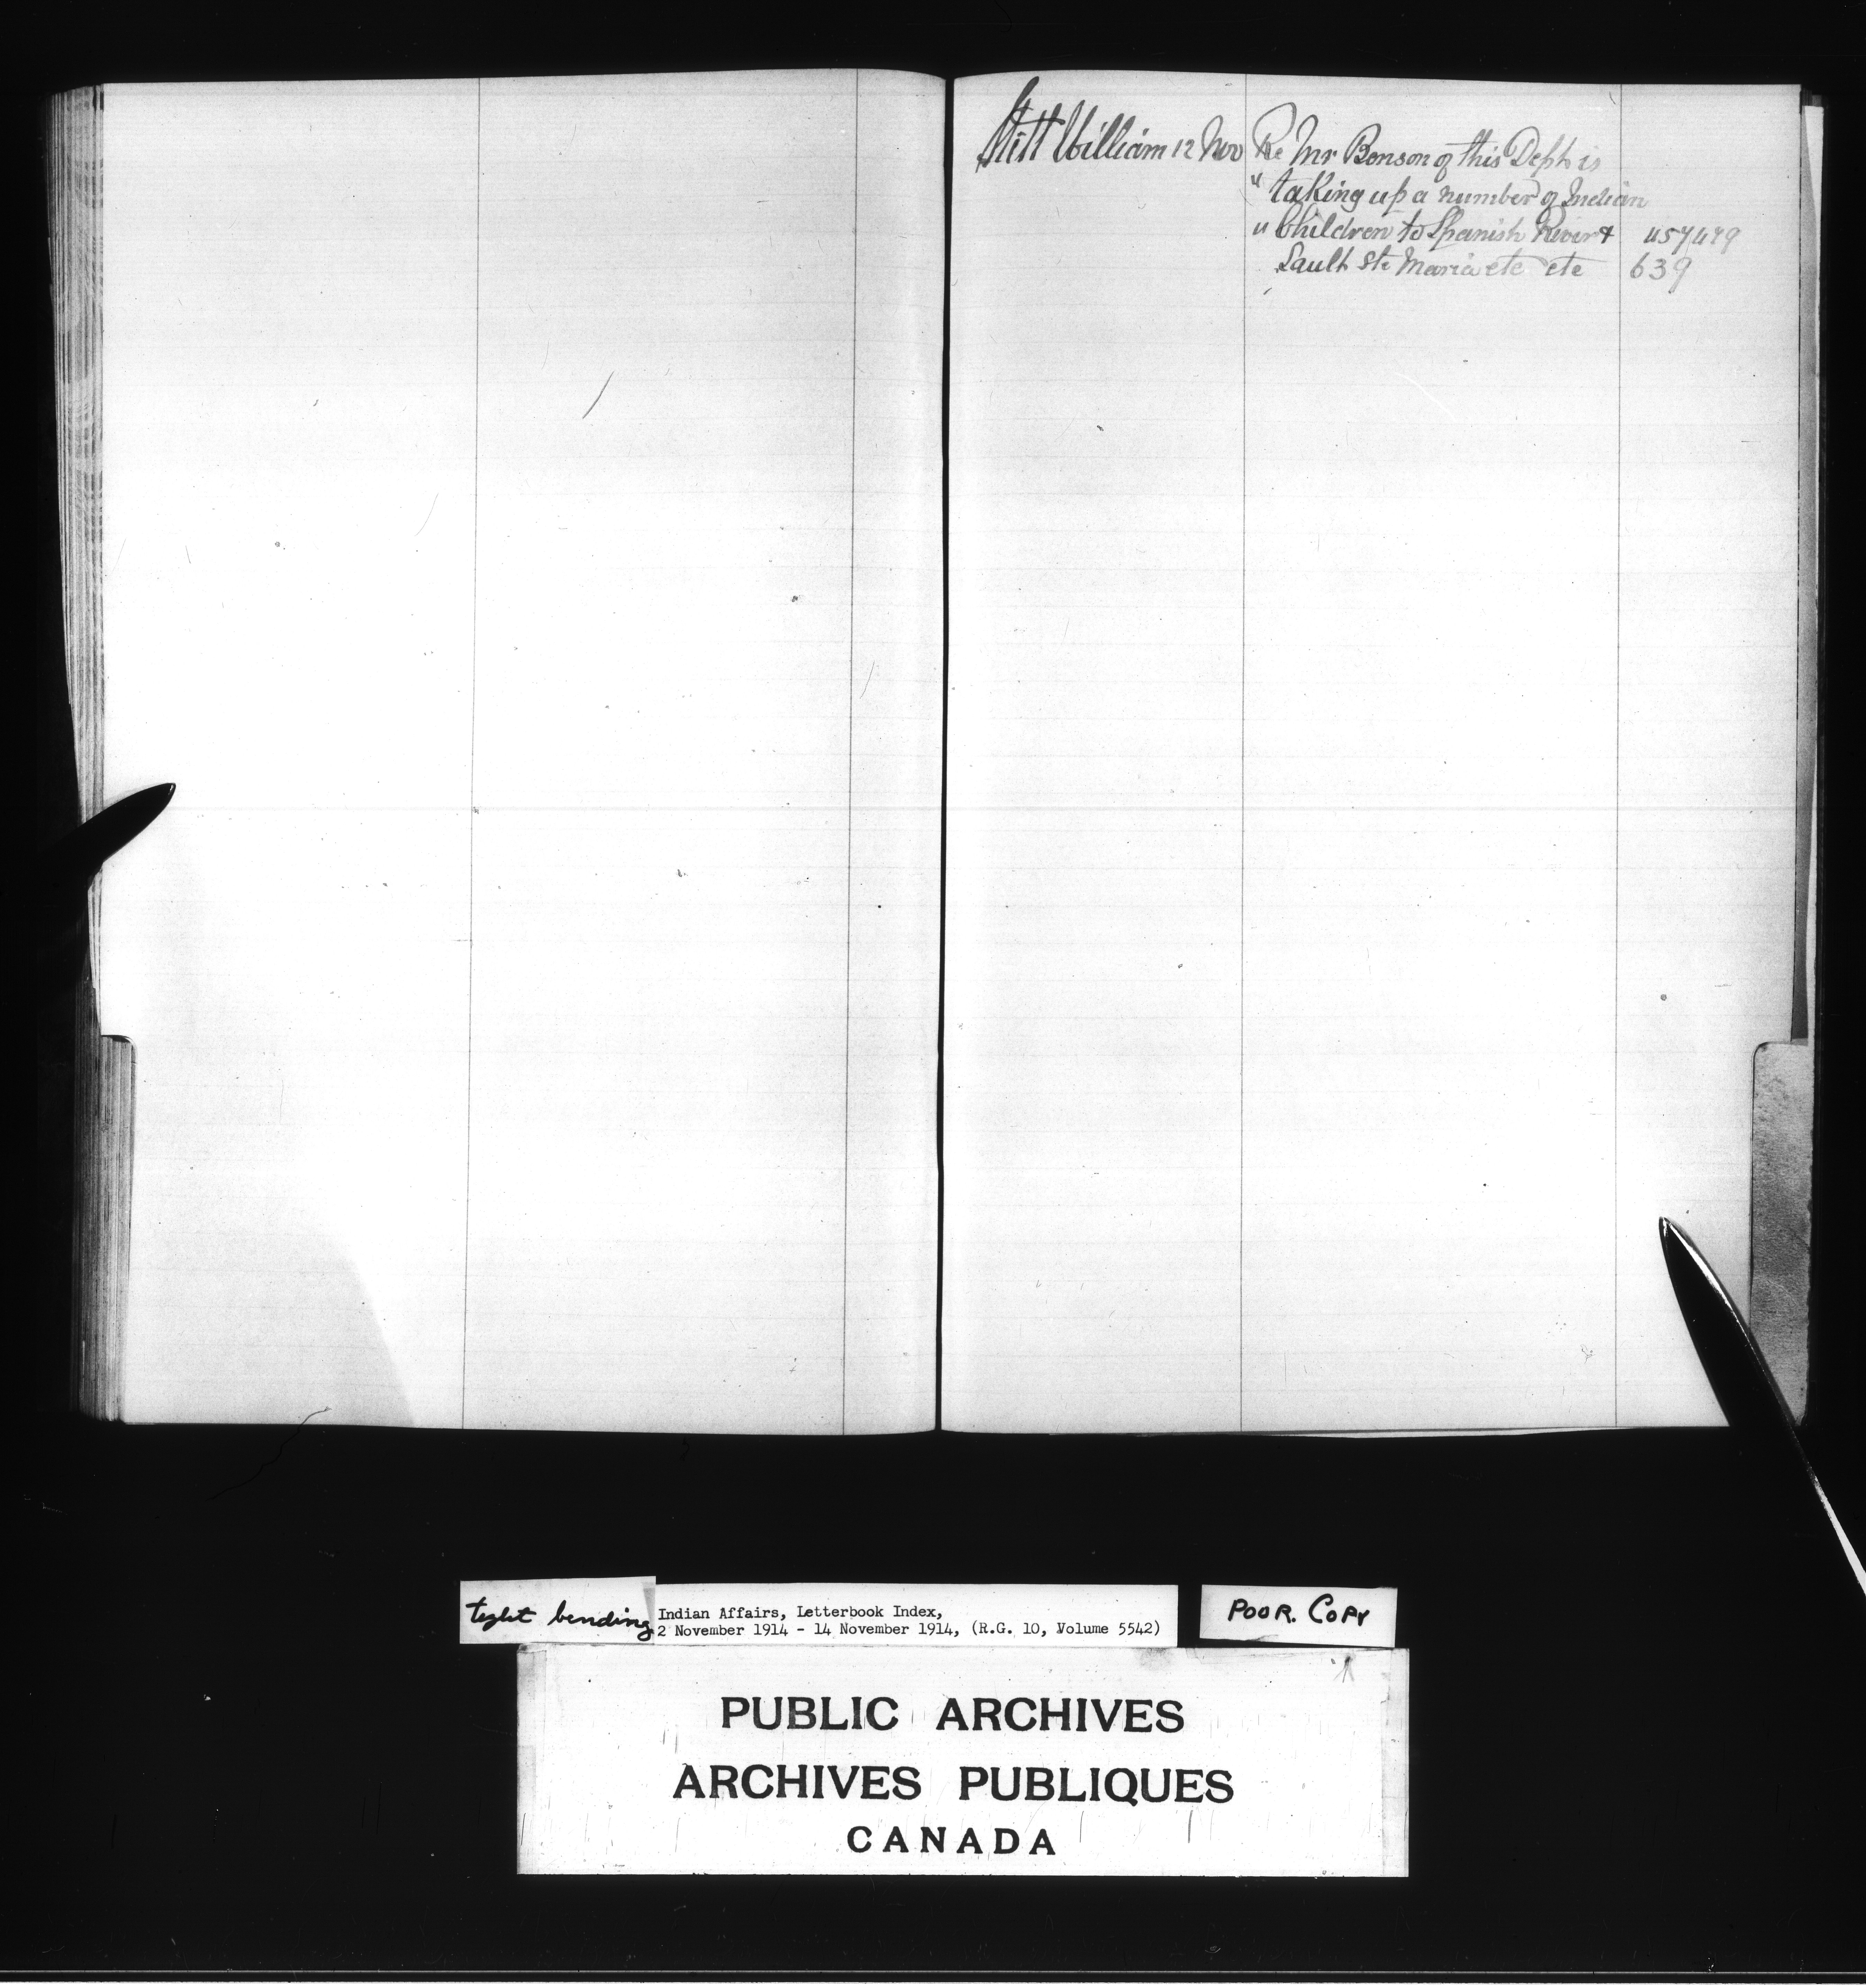 Stitt William 12 Nov Re Mr Benson of this Dept is
" taking up a number of Indian
" Children to Spanish River & 457479
Sault Ste Marie etc etc 639
tight bending
Indian Affairs, Letterbook Index,
2 November 1914 - 14 November 1914, (R.G. 10, Volume 5542)
POOR. COPY
PUBLIC ARCHIVES
ARCHIVES PUBLIQUES
CANADA